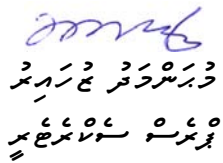 މުޙަންމަދު ޒުހައިރު
ޕްރެސް ސެކްރެޓެރީ